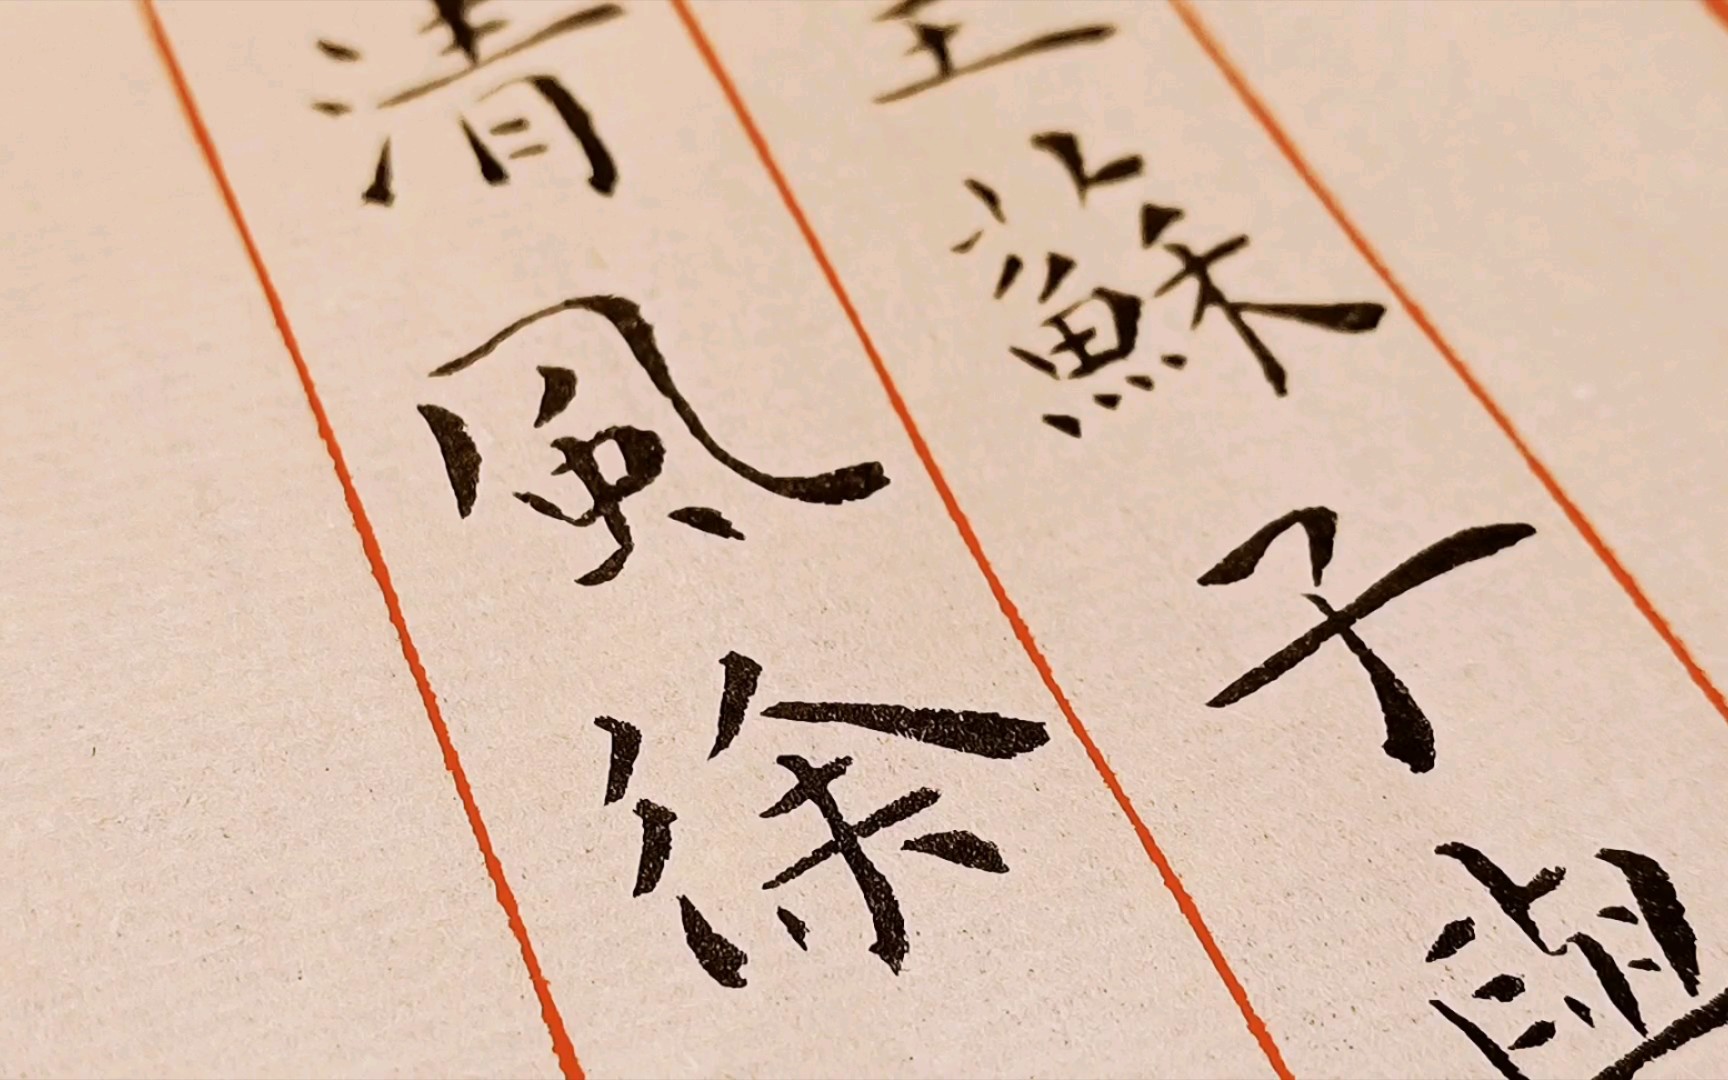 蘇子與
清風徐